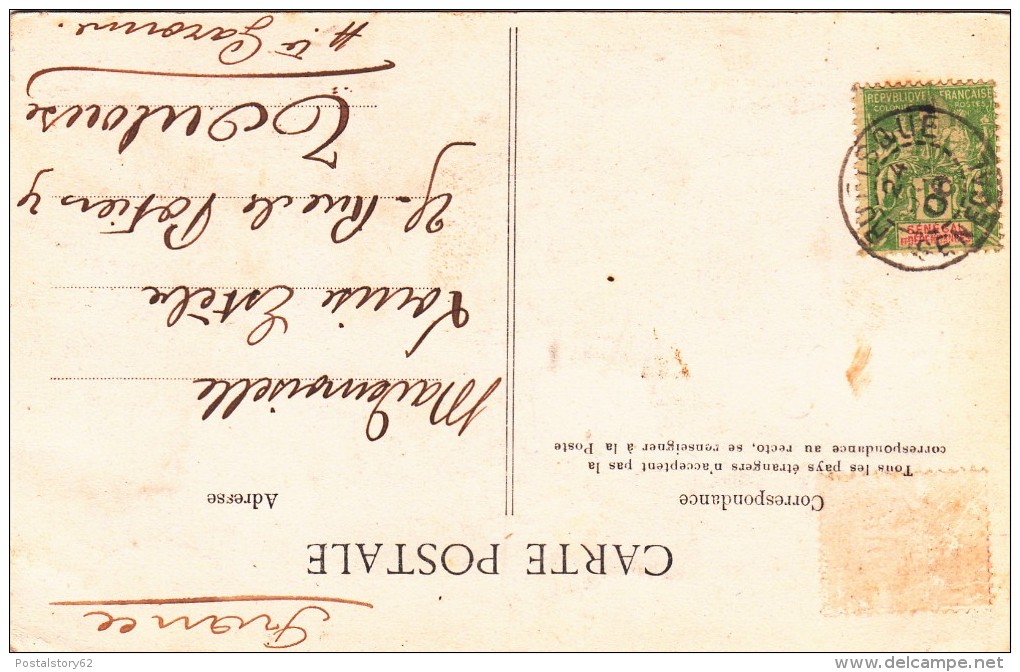 France
CARTE POSTALE
Correspondance
Tous les pays étrangers n'acceptent pas la
correspondance au recto, se renseigner à la Poste
Adresse
Mademoiselle
Louise Estèbe
Rue de Potiers
Toulouse
Hte Garonne.
REPUBLIQUE FRANÇAISE
COLONIES POSTES
SENEGAL
ET DEPENDANCES
RUFISQUE
24
08
SENEGAL
Postalstory62
delcampe.net